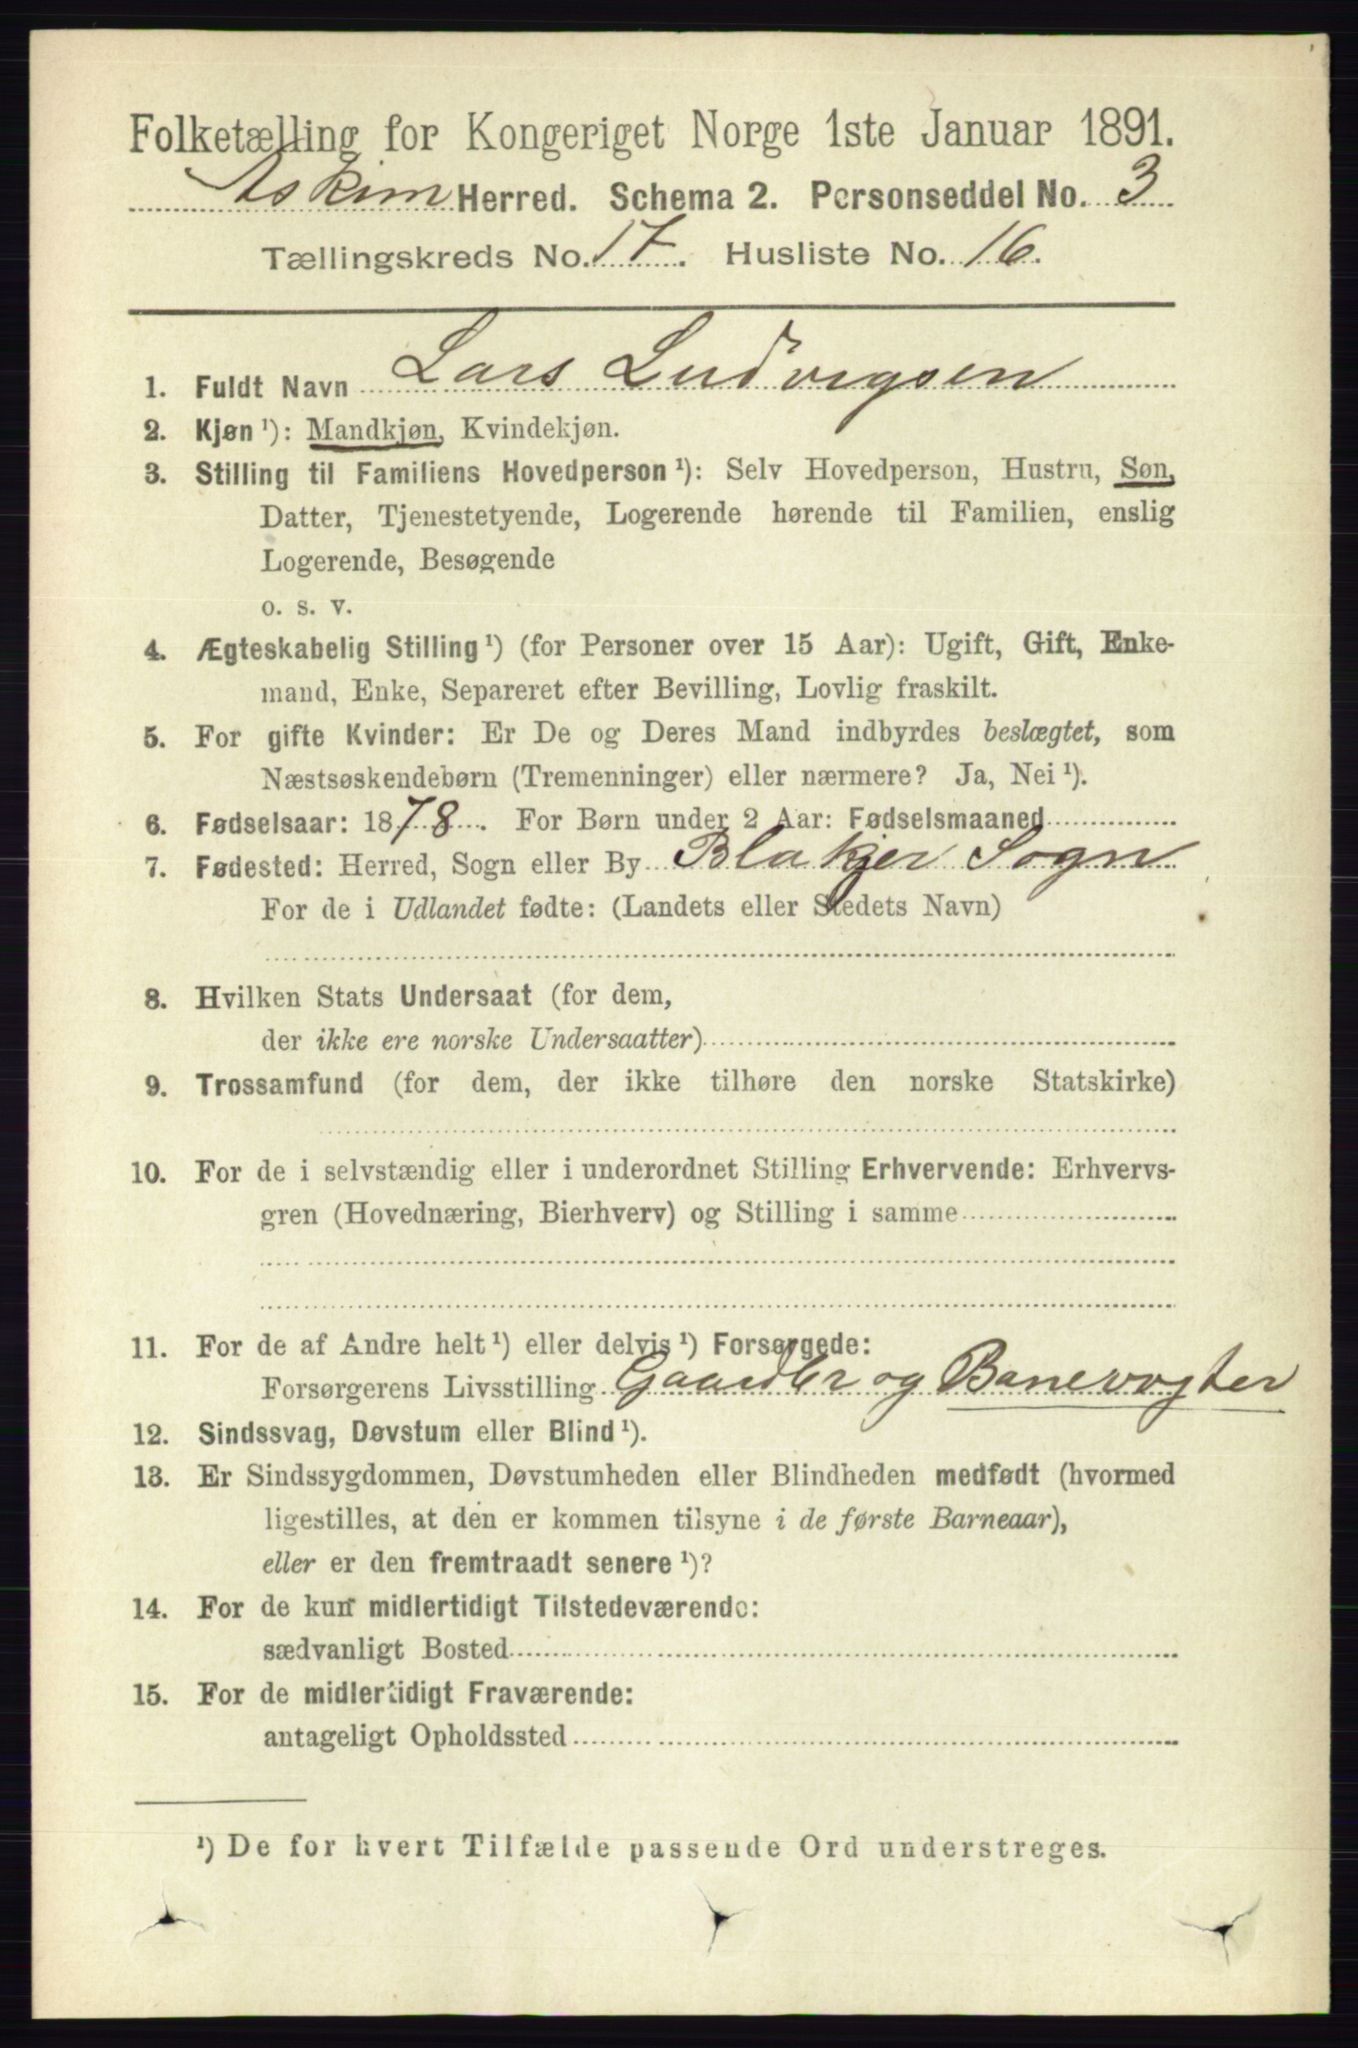 Folketælling for Kongeriget Norge 1ste Januar 1891.
Askim Herred. Schema 2. Personseddel No. 3
Tællingskreds No. 17. Husliste No. 16.
1. Fuldt Navn Lars Ludvigsen
2. Kjøn ¹): Mandkjøn, Kvindekjøn.
3. Stilling til Familiens Hovedperson ¹): Selv Hovedperson, Hustru, Søn,
Datter, Tjenestetyende, Logerende hørende til Familien, enslig
Logerende, Besøgende
o. s. v.
4. Ægteskabelig Stilling ¹) (for Personer over 15 Aar): Ugift, Gift, Enke-
mand, Enke, Separeret efter Bevilling, Lovlig fraskilt.
5. For gifte Kvinder: Er De og Deres Mand indbyrdes beslægtet, som
Næstsøskendebørn (Tremenninger) eller nærmere? Ja, Nei ¹).
6. Fødselsaar: 1878. For Børn under 2 Aar: Fødselsmaaned
7. Fødested: Herred, Sogn eller By Blakjer Sogn
For de i Udlandet fødte: (Landets eller Stedets Navn)
8. Hvilken Stats Undersaat (for dem,
der ikke ere norske Undersaatter)
9. Trossamfund (for dem, der ikke tilhøre den norske Statskirke)
10. For de i selvstændig eller i underordnet Stilling Erhvervende: Erhvervs-
gren (Hovednæring, Bierhverv) og Stilling i samme
11. For de af Andre helt ¹) eller delvis ¹) Forsørgede:
Forsørgerens Livsstilling Gaardbr og Banevogter
12. Sindssvag, Døvstum eller Blind ¹).
13. Er Sindssygdommen, Døvstumheden eller Blindheden medfødt (hvormed
ligestilles, at den er kommen tilsyne i de første Barneaar),
eller er den fremtraadt senere ¹)?
14. For de kun midlertidigt Tilstedeværende:
sædvanligt Bosted
15. For de midlertidigt Fraværende:
antageligt Opholdssted
¹) De for hvert Tilfælde passende Ord understreges.